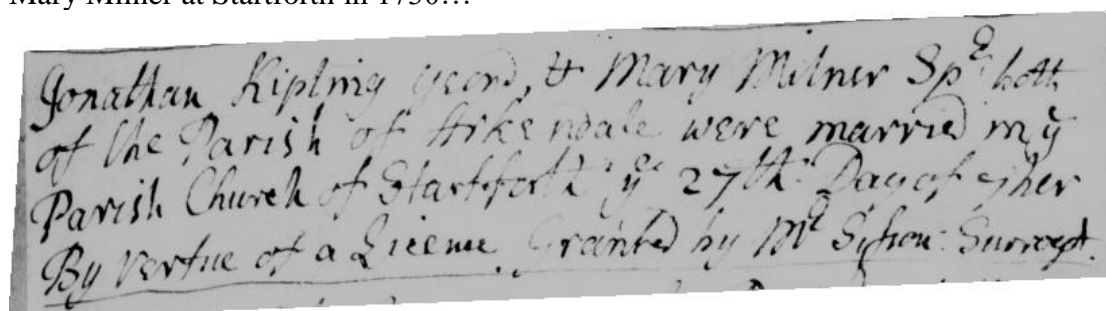 Mary Milner at Startforth in 1730…
Jonathan Kipling yeom, & Mary Milner Spr both
of the Parish of Arkendale were married in ye
Parish Church of Startforth ye 27th Day of 9ber
By Vertue of a Licence Granted by Mr Sisson Surrogt.